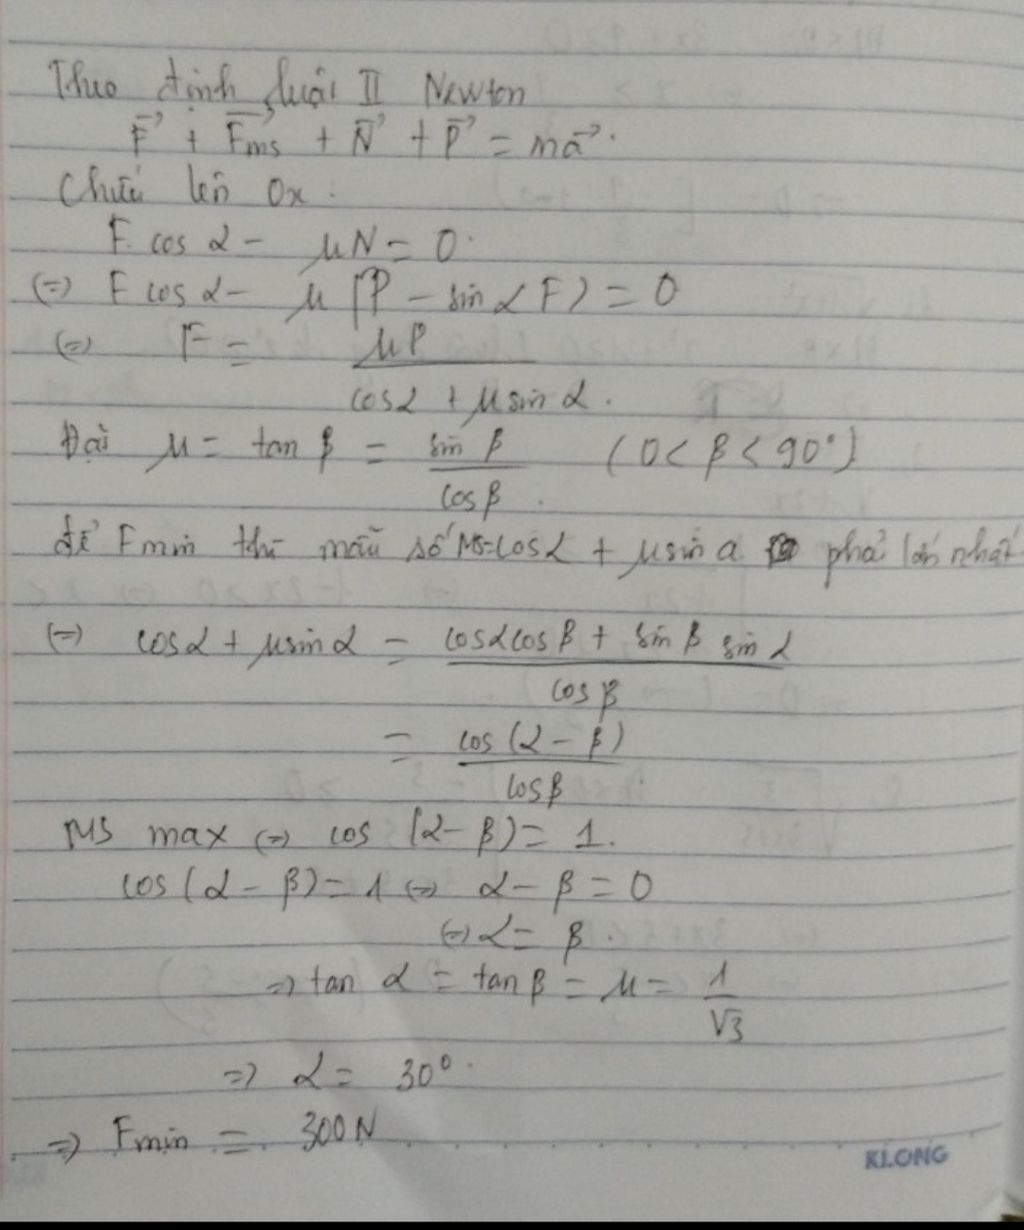 Theo định luật II Newton
F⃗ + F⃗ms + N⃗ + P⃗ = ma⃗.
Chiếu lên Ox :
F. cos α - μN = 0.
(=) F cos α - μ (P - sin α F) = 0
(=) F = μP / cos α + μ sin α.
Đặt μ = tan β = sin β / cos β. (0 < β < 90°)
để Fmin thì mẫu số MS=cos α + μ sin a. phải lớn nhất
(=) cos α + μ sin α = cos α cos β + sin β sin α / cos β
= cos (α - β) / cos β
MS max (=) cos (α - β) = 1.
cos (α - β) = 1 (=) α - β = 0
(=) α = β.
=> tan α = tan β = μ = 1 / √3
=> α = 30°.
=> Fmin = 300 N
KLONG